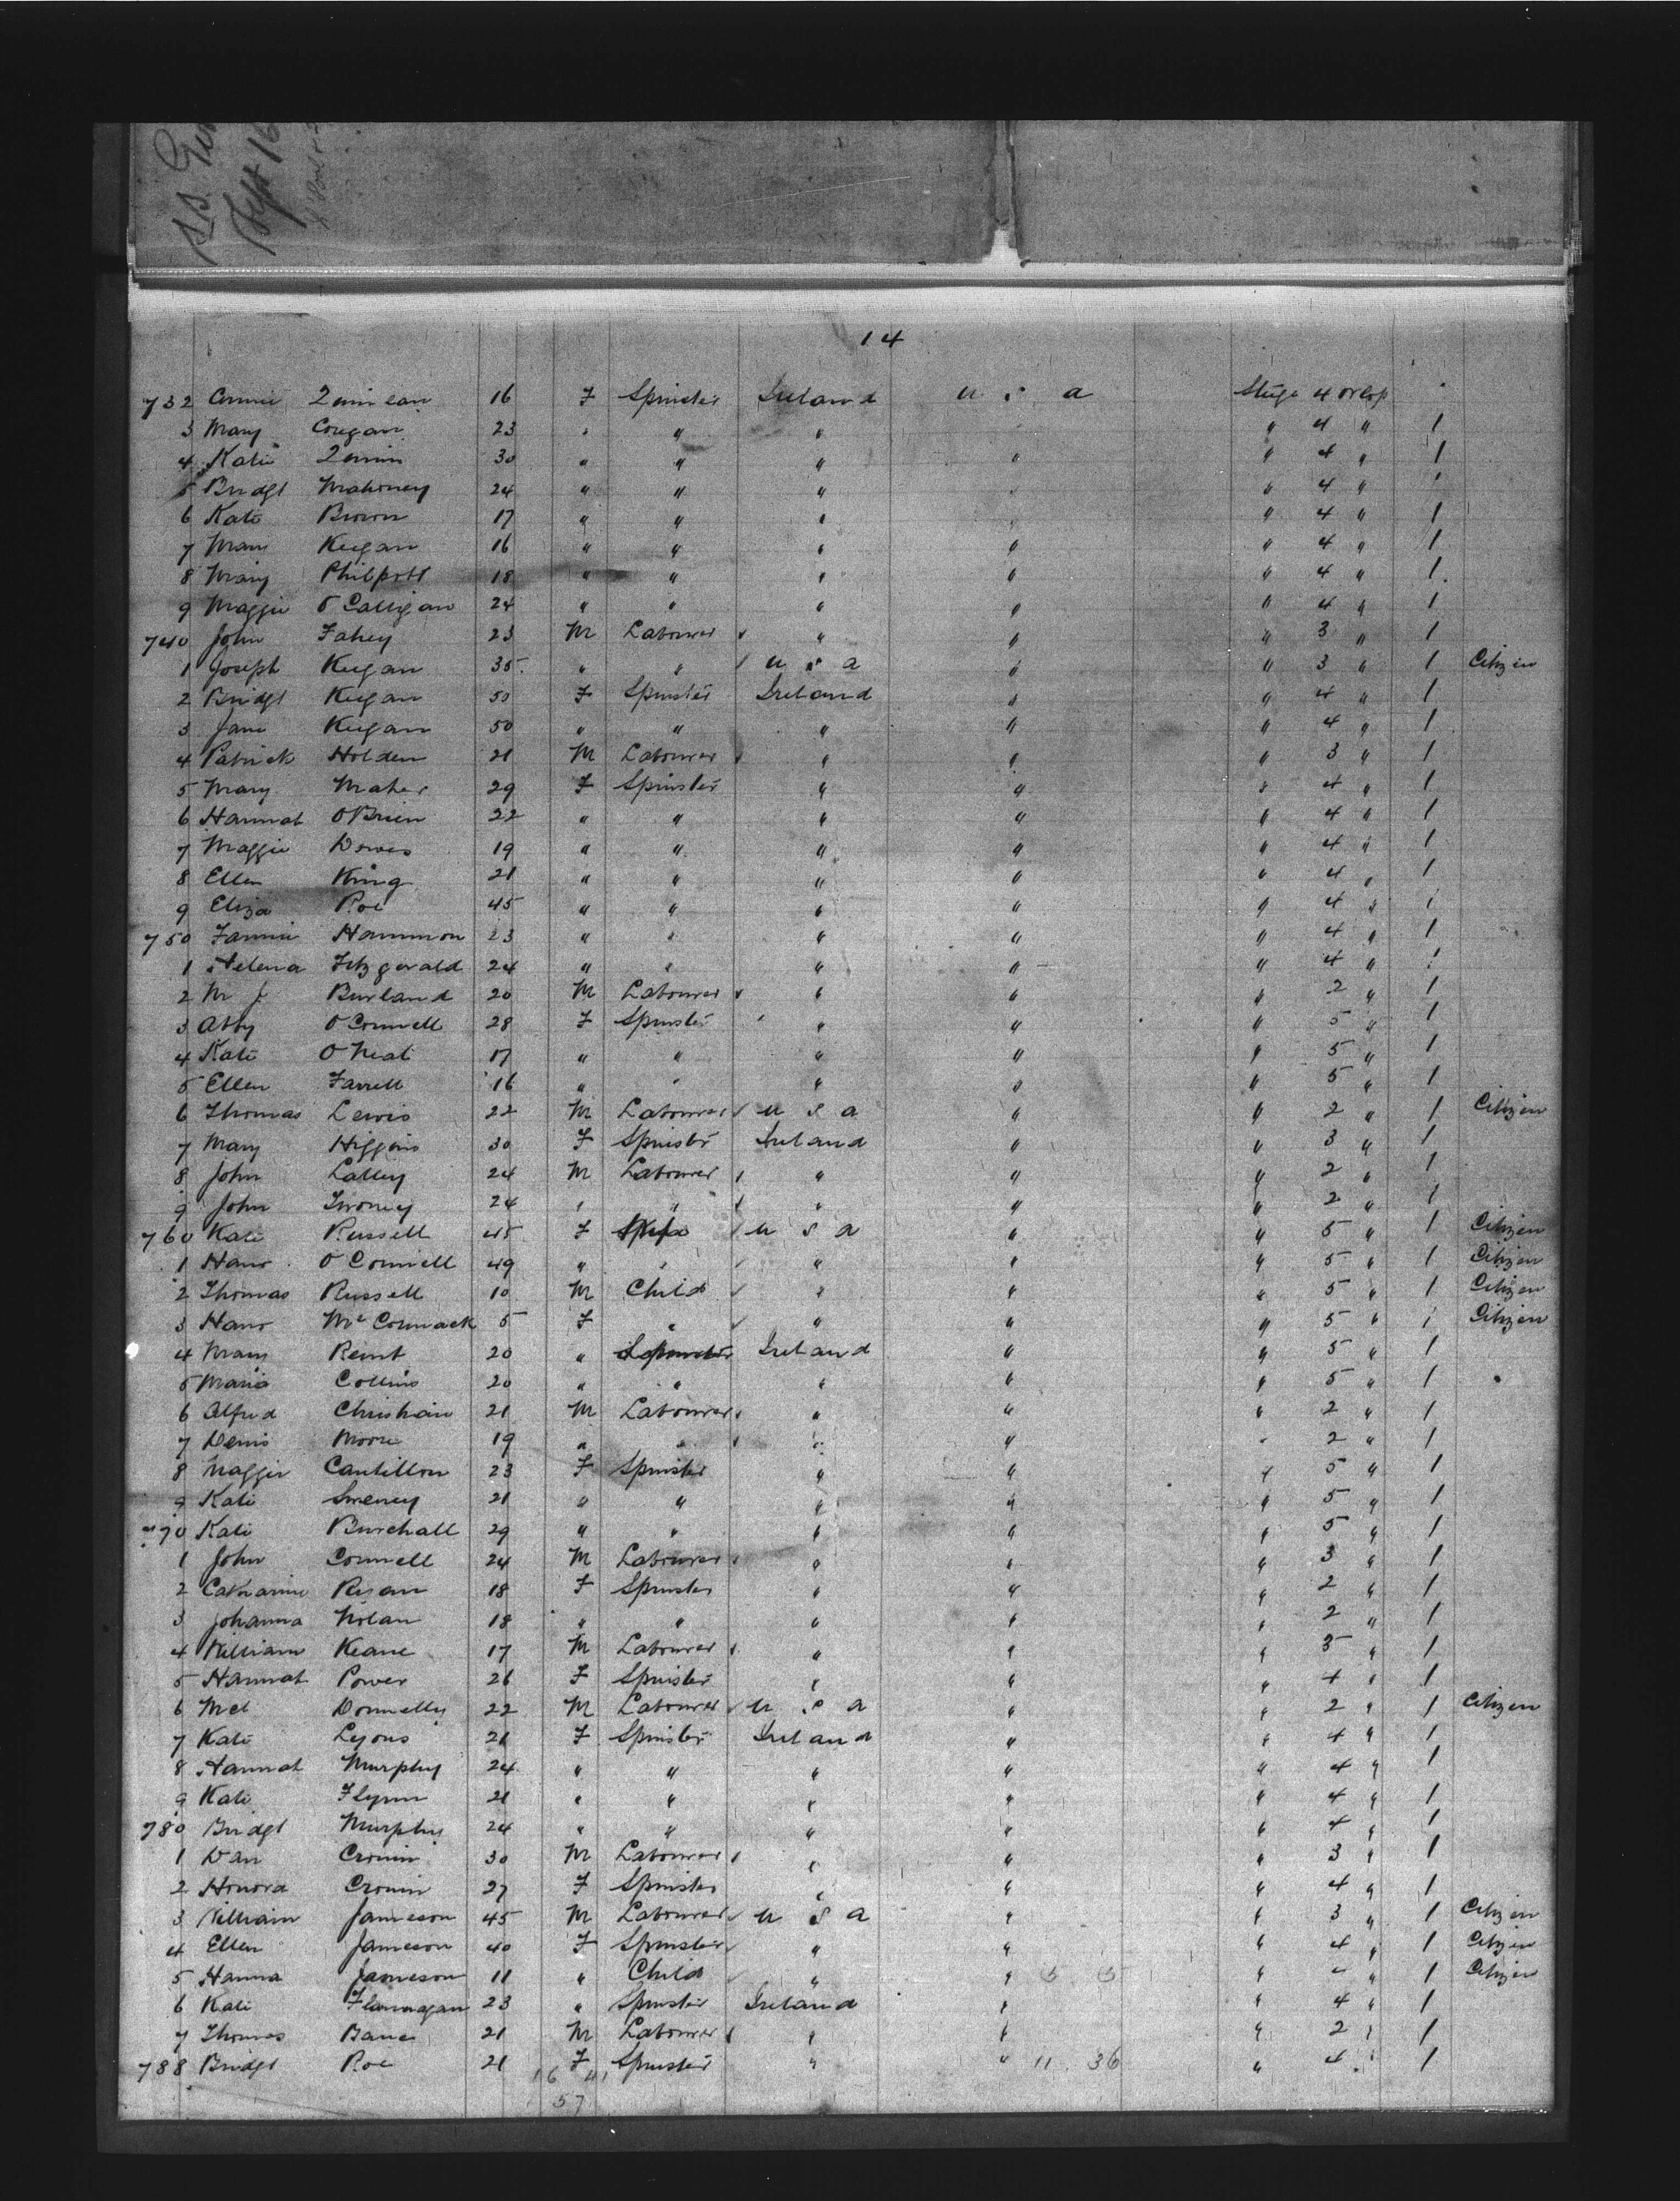 S.S.
Sept 16
14
732 Annie Quinlan 16 F Spinster Ireland U S A Stege 4 orlop
3 Mary Coregan 23 " " " " 4 " 1
4 Katie Quinn 30 " " " " " 4 " 1
5 Bridgt Mahoney 24 " " " " " 4 " 1
6 Kate Brown 17 " " " " " 4 " 1
7 Mary Keegan 16 " " " " " 4 " 1
8 Mary Philpott 18 " " " " " 4 " 1
9 Maggie O Calligan 24 " " " " " 4 " 1
740 John Fahey 23 M Labourer " " " 3 " 1
1 Joseph Keegan 35 " " U S A " " 3 " 1 Citizen
2 Bridgt Keegan 50 F Spinster Ireland " " 4 " 1
3 Jane Keegan 50 " " " " " 4 " 1
4 Patrick Holden 21 M Labourer " " " 3 " 1
5 Mary Maher 29 F Spinster " " " 4 " 1
6 Hannah O'Brien 22 " " " " " 4 " 1
7 Maggie Dowes 19 " " " " " 4 " 1
8 Ellen King 21 " " " " " 4 " 1
9 Eliza Roe 45 " " " " " 4 " 1
750 Fannie Hammon 23 " " " " " 4 " 1
1 Helena Fitzgerald 24 " " " " " 4 " 1
2 M J Burland 20 M Labourer " " " 2 " 1
3 Abby O Connell 28 F Spinster " " " 5 " 1
4 Kate O Neal 17 " " " " " 5 " 1
5 Ellen Farrell 16 " " " " " 5 " 1
6 Thomas Lewis 22 M Labourer U S A " " 2 " 1 Citizen
7 Mary Higgins 30 F Spinster Ireland " " 3 " 1
8 John Lalley 24 M Labourer " " " 2 " 1
9 John Twomey 24 " " " " " 2 " 1
760 Kate Russell 45 F U S A " " 5 " 1 Citizen
1 Hano O Connell 49 " " " " " 5 " 1 Citizen
2 Thomas Russell 10 M Child " " " 5 " 1 Citizen
3 Hano McCormack 5 F " " " " 5 " 1 Citizen
4 Mary 20 " Spinster Ireland " " 5 " 1
5 Maria Collins 20 " " " " " 5 " 1
6 Alfred Christian 21 M Labourer " " " 2 " 1
7 Denis Moore 19 " " " " " 2 " 1
8 Maggie Cantillon 23 F Spinster " " " 5 " 1
9 Kate Sweney 21 " " " " " 5 " 1
770 Kate Burchall 29 " " " " " 5 " 1
1 John Connell 24 M Labourer " " " 3 " 1
2 Catharine Ryan 18 F Spinster " " " 2 " 1
3 Johanna Nolan 18 " " " " " 2 " 1
4 William Keane 17 M Labourer " " " 3 " 1
5 Hannah Power 26 F Spinster " " " 4 " 1
6 Mcl Donnelly 22 M Labourer U S A " " 2 " 1 Citizen
7 Kate Lyons 21 F Spinster Ireland " " 4 " 1
8 Hannah Murphy 24 " " " " " 4 " 1
9 Kate Flynn 21 " " " " " 4 " 1
780 Bridgt Murphy 24 " " " " " 4 " 1
1 Dan Cronin 30 M Labourer " " " 3 " 1
2 Honora Cronin 27 F Spinster " " " 4 " 1
3 William Jameson 45 M Labourer U S A " " 3 " 1 Citizen
4 Ellen Jameson 40 F Spinster " " " 4 " 1 Citizen
5 Hanna Jameson 11 " Child " " " " " 1 Citizen
6 Kate Flannagan 23 " Spinster Ireland " " 4 " 1
7 Thomas Bane 21 M Labourer " " " 2 " 1
788 Bridgt Roe 21 F Spinster " " 11 36 " 4 " 1
16 41
57